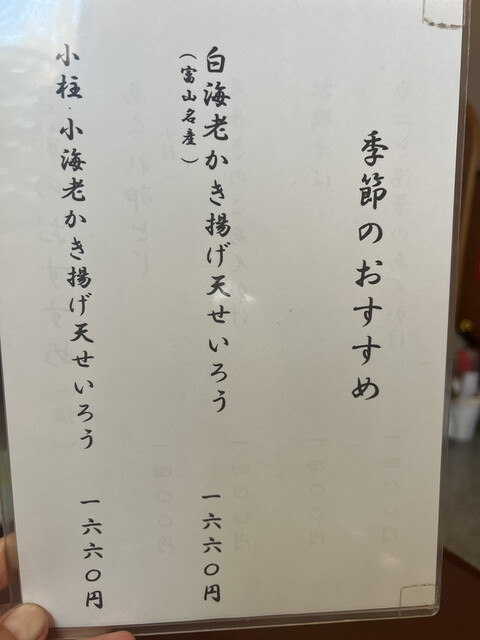 季節のおすすめ
白海老かき揚げ天せいろう 一六六〇円
（富山名産）
小柱・小海老かき揚げ天せいろう 一六六〇円